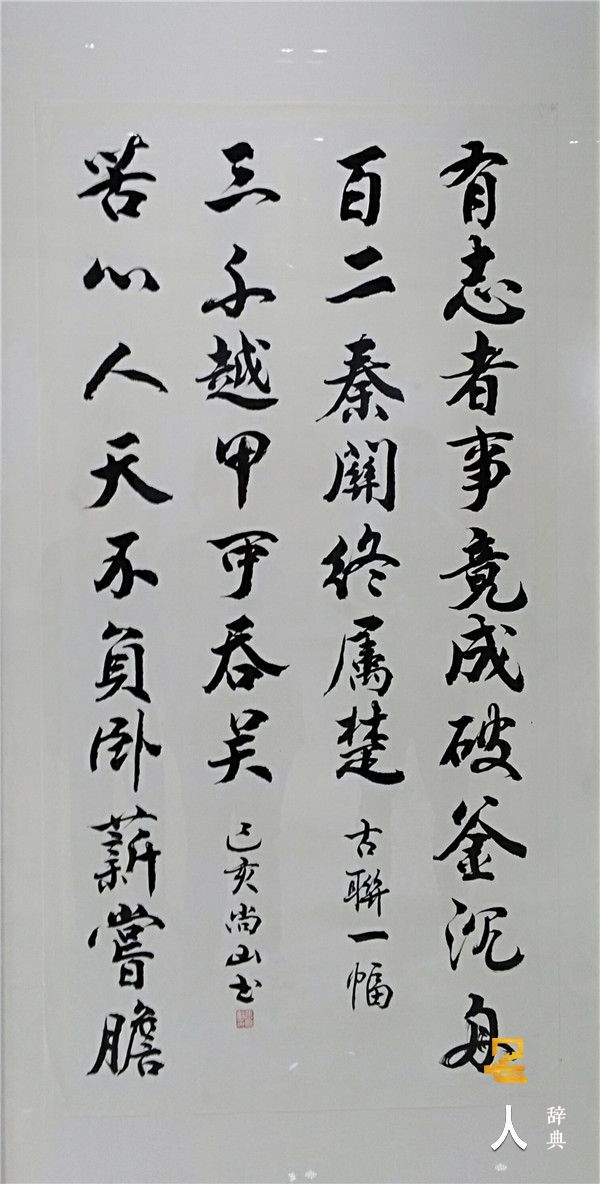 有志者事竟成破釜沉舟
百二秦關終属楚
古聯一幅
苦心人天不負卧薪嘗膽
三千越甲可吞吴
己亥尚山书
人
辞典